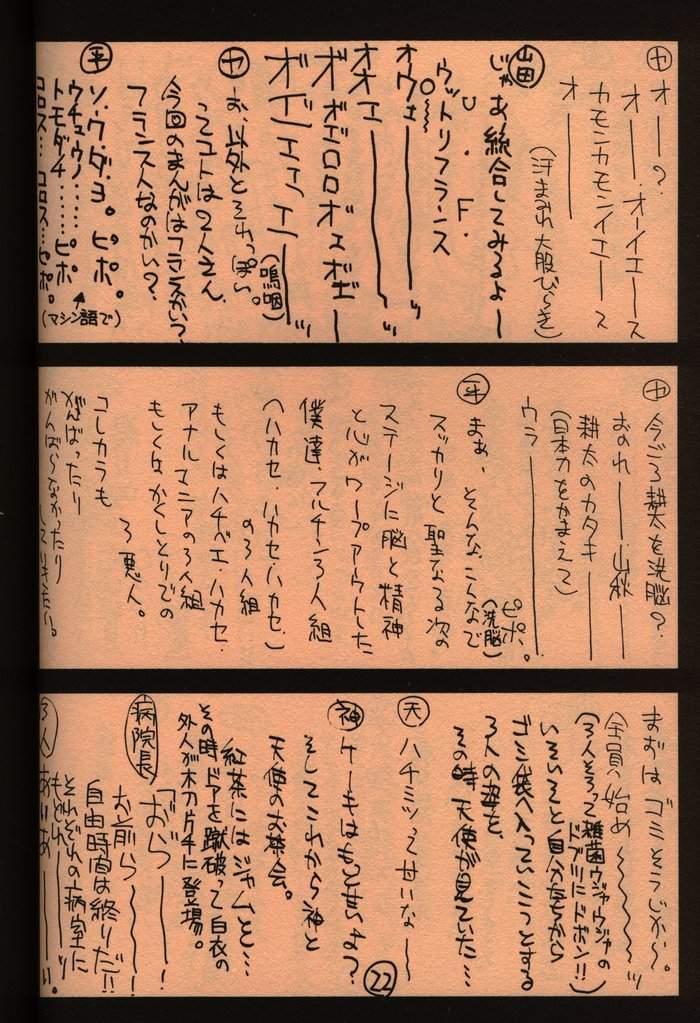 ヤ オー?
オー・オーイエース
カモンカモンイエース
オー
(汗まみれ大股びらき)
山田 じゃあ統合してみるよー
U.F.O
ウットリフランス
オウェー
オオェー
オボエロロオェボゼー
オゲェェエー
(嗚咽)
ヤ お、以外とそれっぽい。
ってコトは2人さん、
今回のまんがはフランスかい?
フランス人なのかい?
平 ソ.ウ.ダ.ヨ。ピポ。
ウチュウノ……ピポ
トモダチ……ピポ
コロス…コロス…ピポ。
(マシン語で)
ヤ 今ごろ耕太を洗脳?
おのれー山秋
耕太のカタキー
(日本刀をかまえて)
ウラー
ピポ。
(洗脳)
平 まぁ、そんな、こんなで
スッカリと聖なる次の
ステージに脳と精神
と心がワープアウトした
僕達、フルチン3人組
(ハカセ・ハカセ・ハカセ。)
の3人組
もしくはハチベエ・ハカセ・
アナルマニアの3人組
もしくはかくしとりでの
3悪人。
コレカラも
がんばったり
がんばらなかったり
していきたい。
まずはゴミそうじから〜。
全員 始め〜
(3人そろって雑菌ウジャウジャの
ドブ川にドボン!!)
いそいそと自分たちから
ゴミ袋へ入っていこうとする
3人の姿を、
その時天使が見ていた…
天 ハチミツって甘いな〜
神 ケーキはもっと甘いよ?
そしてこれから神と
天使のお茶会。
紅茶にはジャムと…
その時ドアを蹴破って白衣の
外人が木刀片手に登場。
病院長 「おらー!
お前らー!
自由時間は終りだ!!
それぞれの病室に
もどれー!!
3人 あいあーい。
22